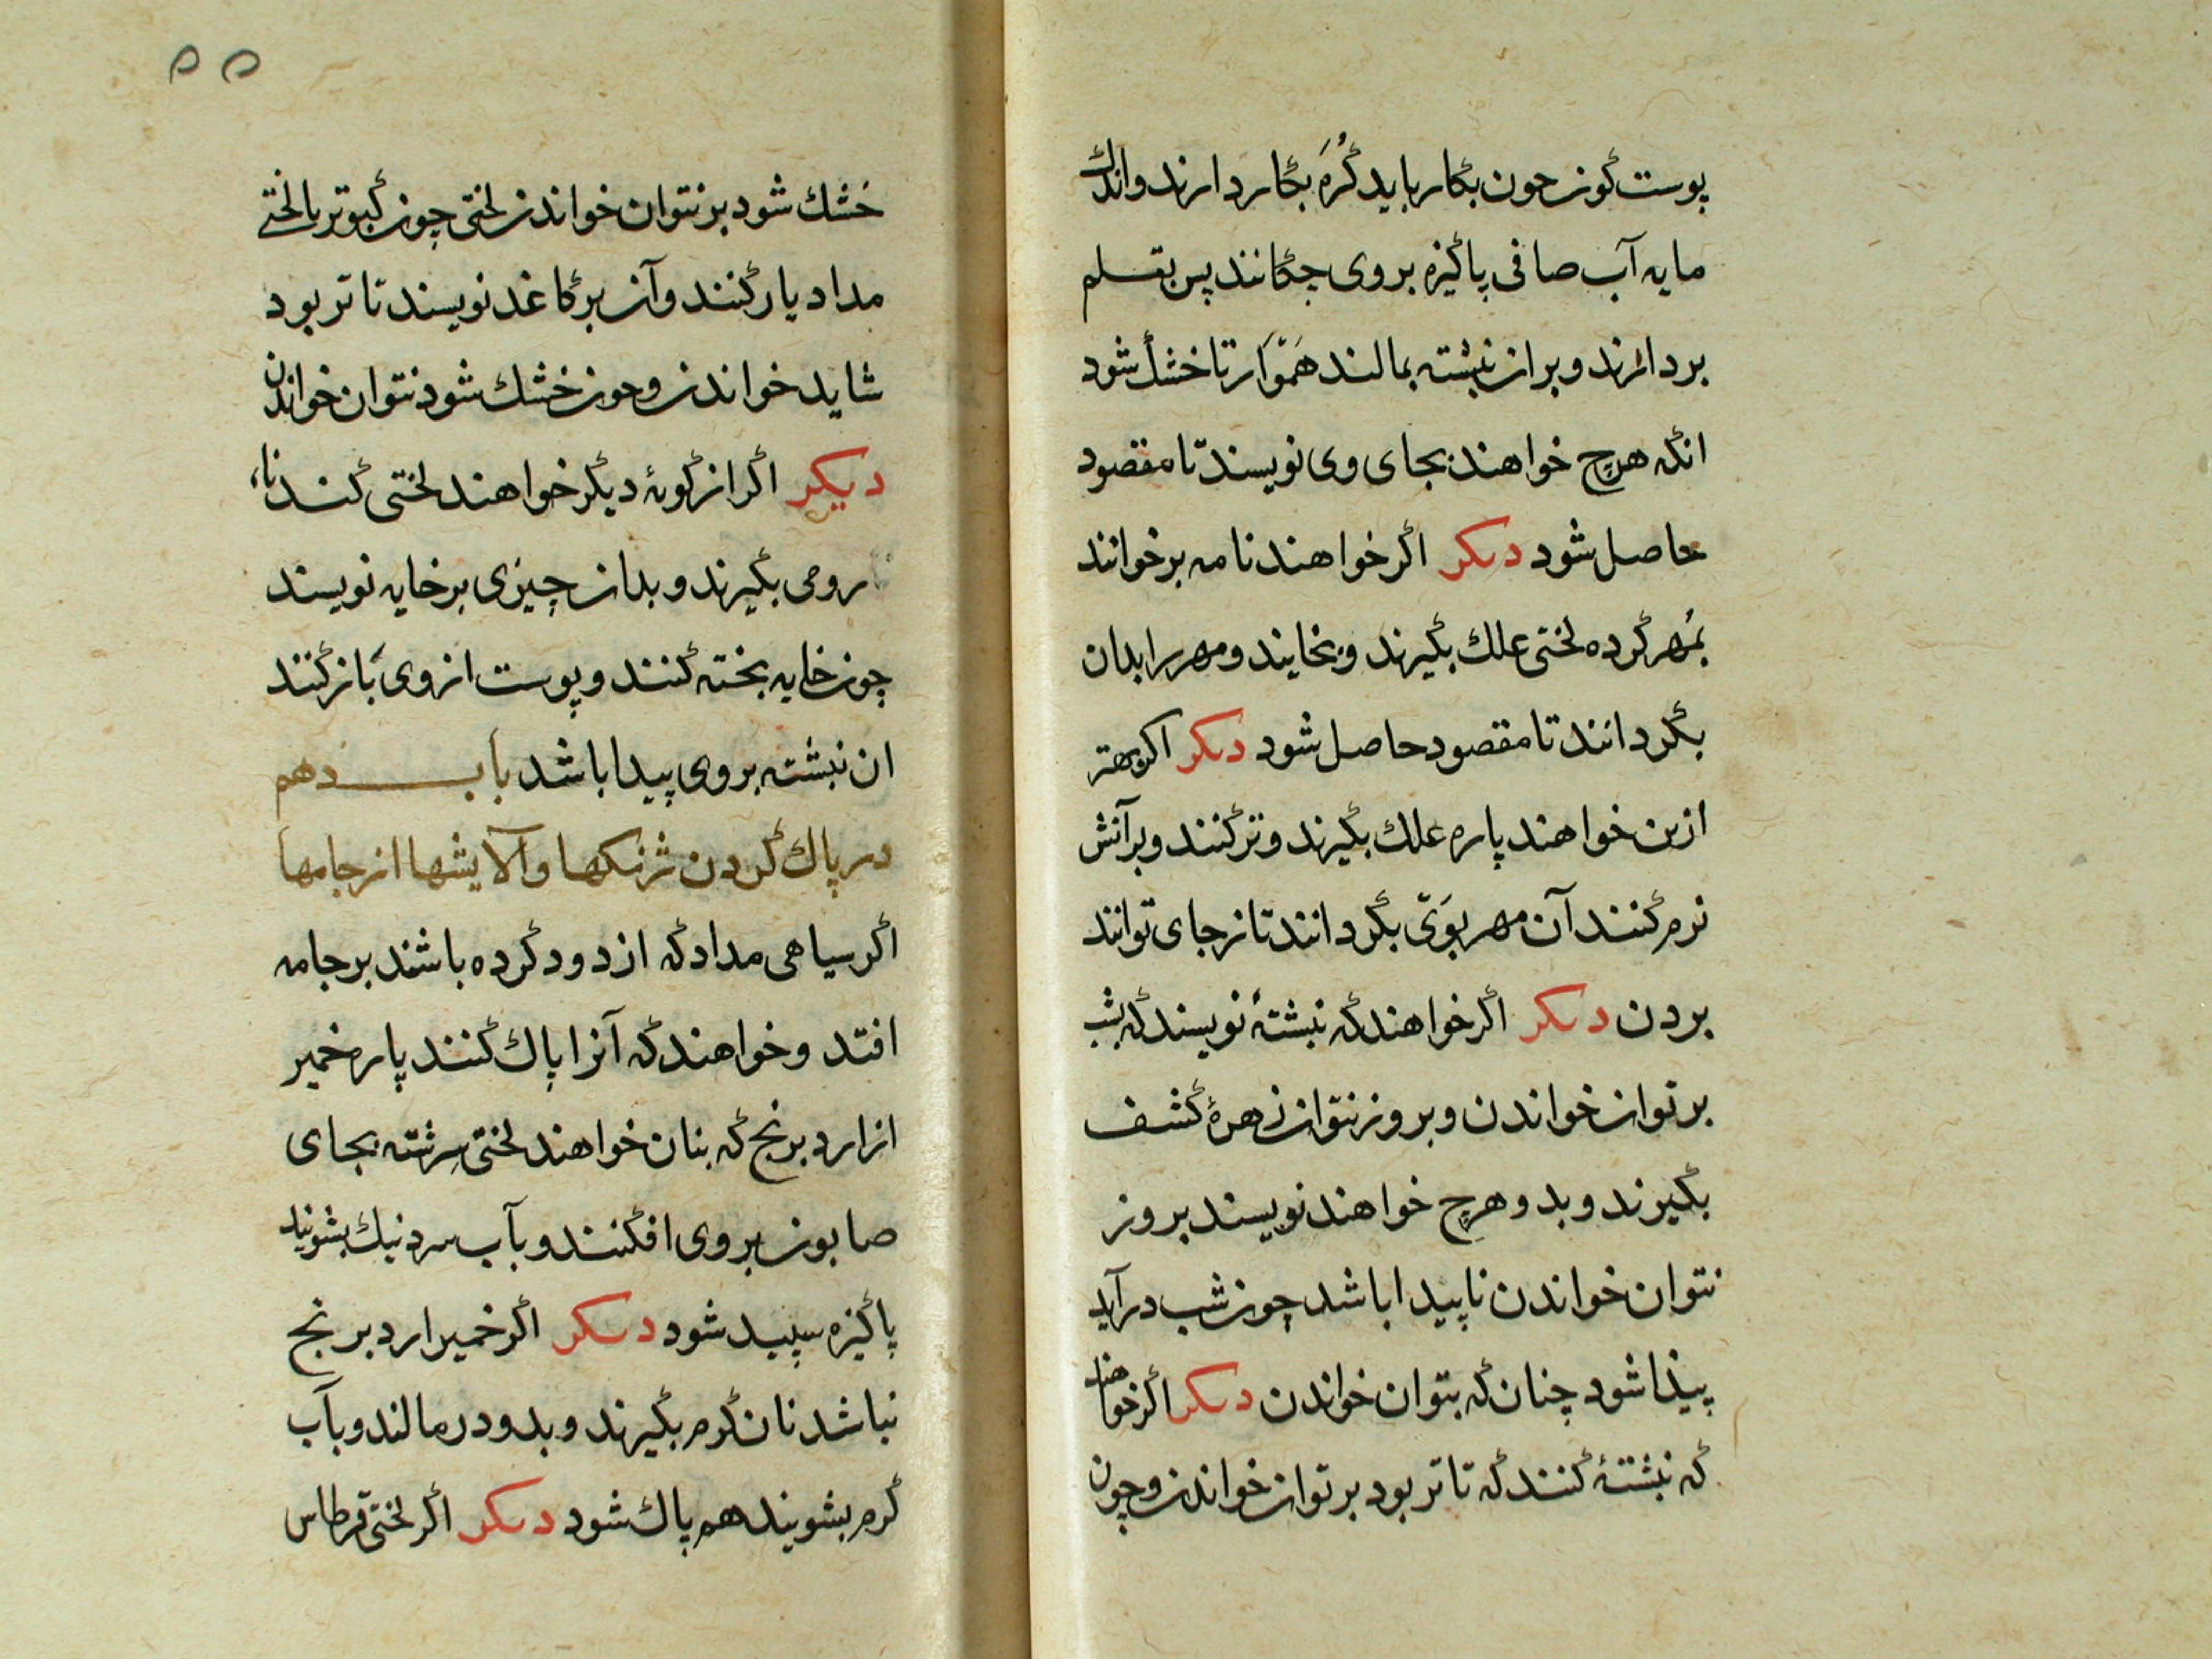 پوست کوز جون بکار باید کُرَه بکار دارند واندک
مایه آب صافی پاکیزه بروی جکانند پس بقلم
بردارند و بران نبشته بمالند همَوّار تا خشک شود
انکه هرچ خواهند بجای وی نویسند تا مقصود
حاصل شود دیکر اکر خواهند نامه برخوانند
بمُهر کرده لختی علك بکیرند و بخایند و مهر را بدان
بکردانند تا مقصود حاصل شود دیکر اکر بهتر
ازین خواهند پاره علك بکیرند و تر کنند و برآتش
نرم کنند آن مهر بوَیّ بکردانند تا نرجای توانند
بردن دیکر اکر خواهند که نبشتهٔ نویسند که بشب
بر توان خواندن و بروز نتوان زهرهٔ کشف
بکیرند و بدو هرچ خواهند نویسند بروز
نتوان خواندن ناپیدا باشد چون شب درآید
پیذا شود چنان که بتوان خواندن دیکر اکر خواهند
که نبشتهٔ کنند که تا تر بود بر توان خواندن و چون
۵۵
خشك شود بر نتوان خواندن لختی چون کبوتر با لختی
مداد یار کنند وآن بر کاغد نویسند تا تر بود
شاید خواندن وجون خشك شود نتوان خواندن
دیکر اکر از کونهٔ دیکر خواهند لختی کندنا،
رومی بکیرند و بدان چیزی بر خایه نویسند
چون خایه بخته کنند و پوست از وی باز کنند
ان نبشته بروی پیدا باشد باب دهم
در پاك کردن ژنکها و آلایشها از جامها
اکر سیاهی مداد که از دود کرده باشند بر جامه
افتد و خواهند که آنرا پاك کنند پاره خمیر
از ارد برنج که بنان خواهند لختی سرشته بجای
صابون بروی افکنند و بآب سرد نیك بشویند
پاکیزه سپید شود دیکر اکر خمیر ارد برنج
نباشد نان کرم بکیرند و بدو درمالند و بآب
کرم بشویند هم پاك شود دیکر اکر لختی قرطاس